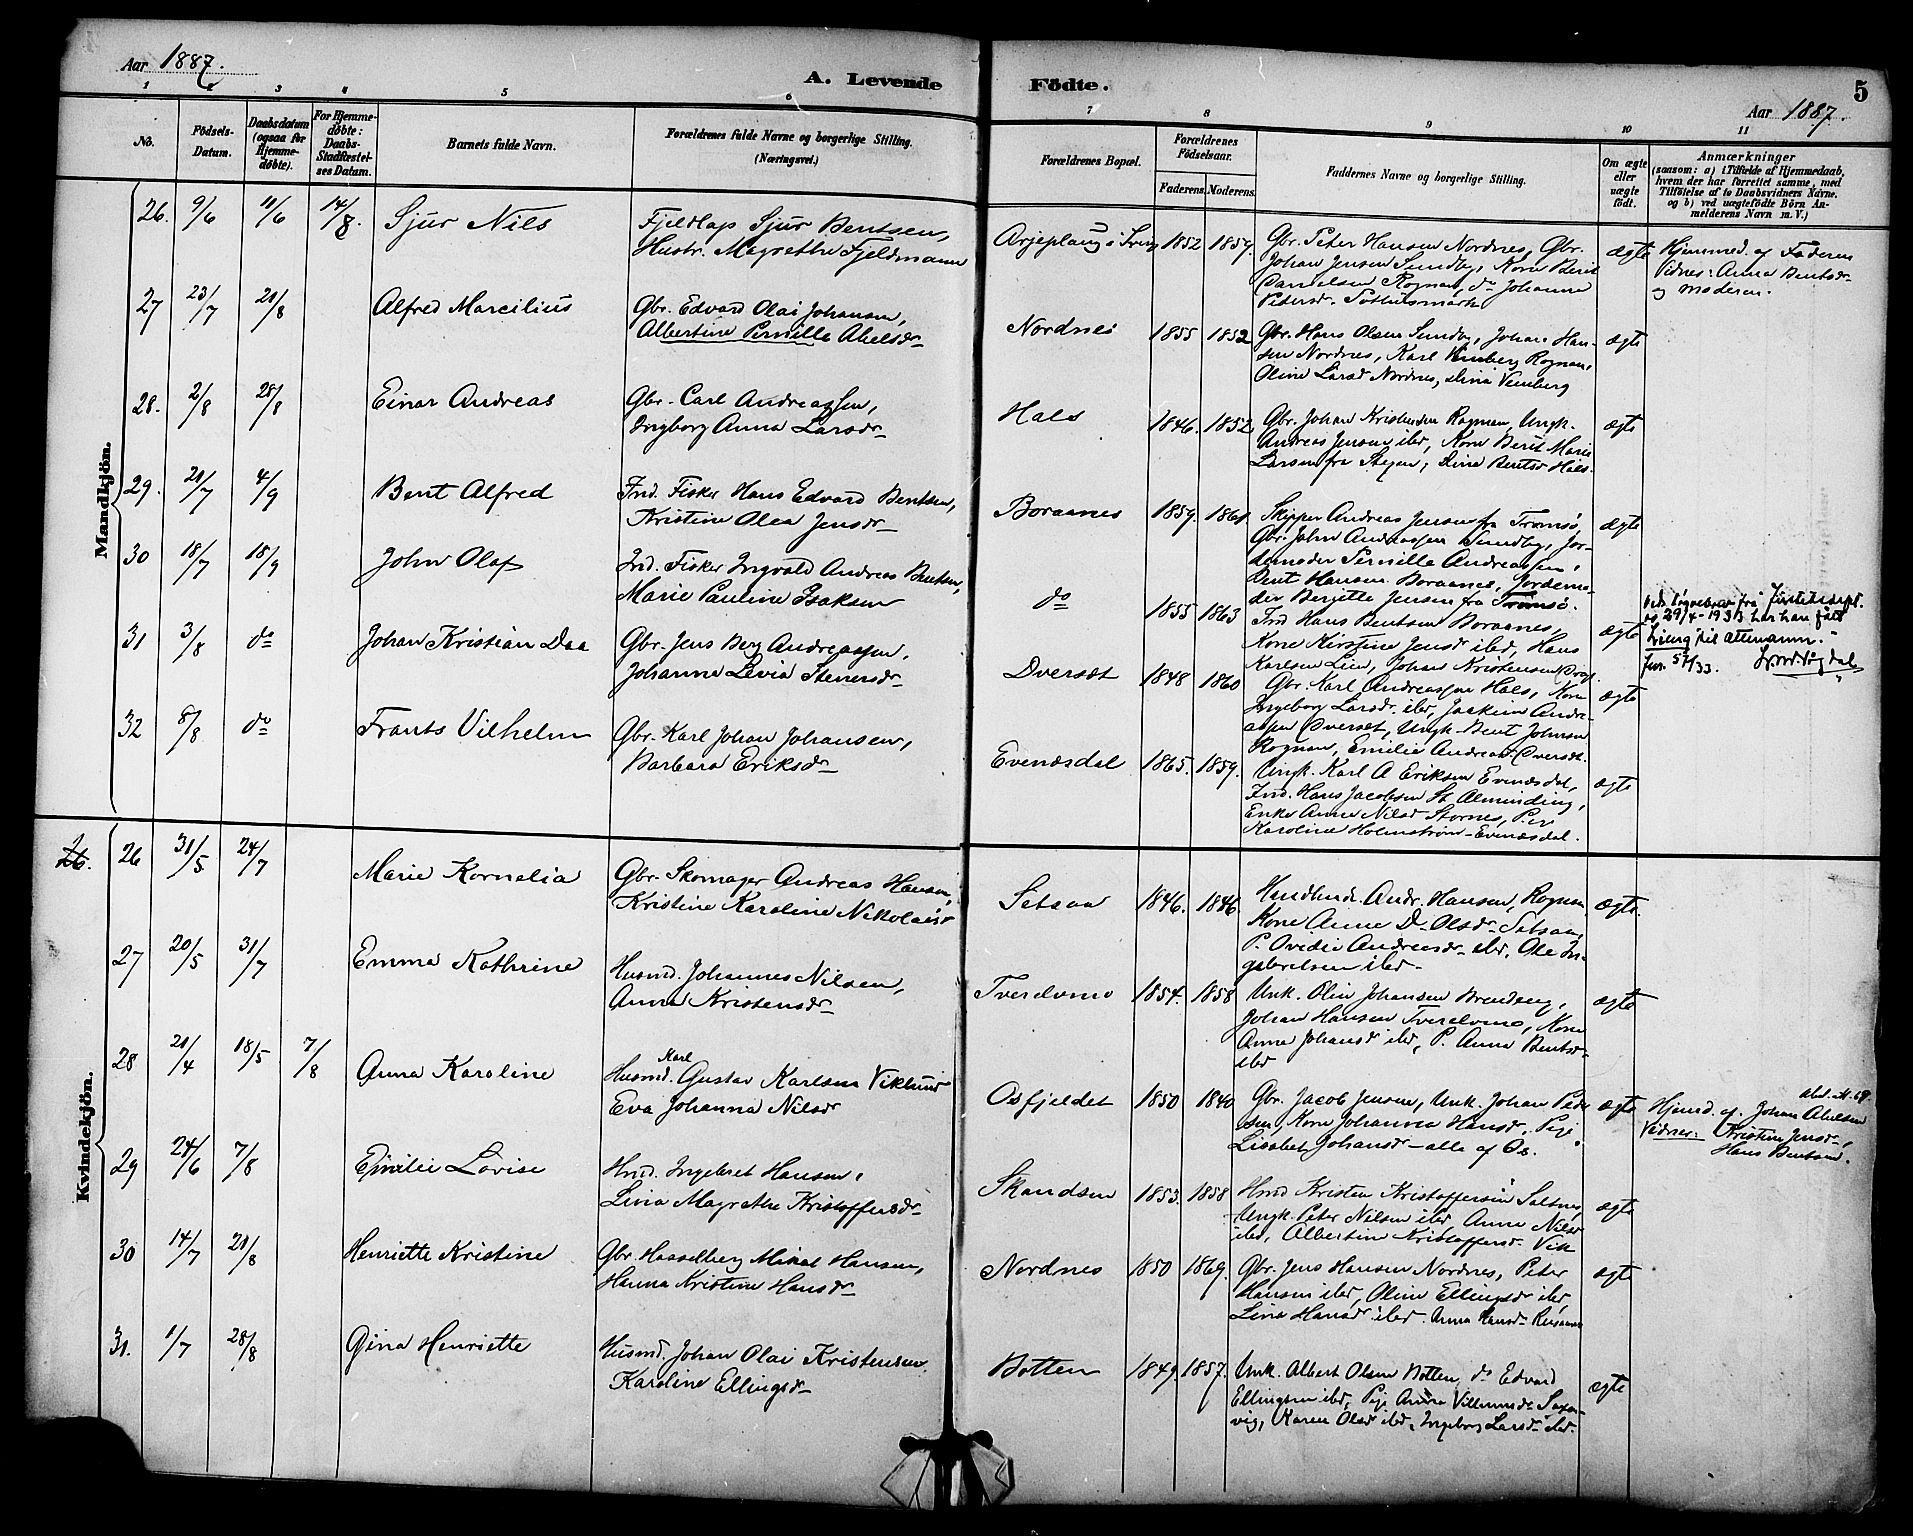 Aar 1887.
A. Levende Födte.
5
Aar 1887.
1 2 3 4 5 6 7 8 9 10 11
No.
Födsels-
Datum.
Daabsdatum
(ogsaa for
Hjemme-
døbte).
For Hjemme-
døbte:
Daabs-
Stadfæstel-
ses Datum.
Barnets fulde Navn.
Forældrenes fulde Navne og borgerlige Stilling.
(Næringsvei.)
Forældrenes Bopæl.
Forældrenes
Födselsaar.
Faderens. Moderens.
Faddernes Navne og borgerlige Stilling.
Om ægte
eller
uægte
født.
Anmærkninger
(saasom: a) i Tilfælde af Hjemmedaab,
hvem der har forrettet samme, med
Tilföielse af to Daabsvidners Navne.
og b) ved uægtefödte Börn An-
melderens Navn m. V.)
Mandkjön.
26. 9/6 11/6 14/8. Sjur Nils
Fjeldlap Sjur Bentsen,
Hustr. Magrethe Fjeldmann
Arjeplaug i Sverig 1852 1859.
Gbr. Peter Hansen Nordnes, Gbr.
Johan Jensen Sundby, Kone Berit
Danielsen Rognan, do Johanna
Petersd.
ægte
Hjemmed. af Faderen
Vidner: Anna Bentsdr
og Moderen.
27 23/7 21/8 Alfred Marcilius
Gbr. Edvard Olai Johansen,
Albertine Pernille Abelsdr
Nordnes 1855 1852
Gbr. Hans Olsen Sundby, Johan Han-
sen Nordnes, Karl Vemberg Rognan,
Oline Larsd Nordnes, Lina Vemberg
ægte
28. 2/8 28/8 Einar Andreas
Gbr. Carl Andreassen,
Ingborg Anna Larsdr
Hals 1846. 1852.
Gbr. Johan Kristensen Rognan, Ungk.
Andreas Jensen ibd, Kone Berit Marie
Larsen fra Stegen, Dina Bentsd Hals.
ægte
29. 21/7 4/9 Bent Alfred
Ind. Fisker Hans Edvard Bentsen,
Kristine Olea Jensdr
Boraanes 1859. 1861
Skipper Andreas Jensen fra Tromsö,
Gbr. John Andreassen Sundby, Jor-
demoder Pernille Andreassen,
Bent Hansen Boraanes, Jordemo-
der Bergitte Jensen fra Tromsö.
ægte
30 18/7 18/9 John Olaf
Ind. Fisker Ingvald Andreas Bentsen,
Marie Pauline Isaksen
do 1855 1863
Ind Hans Bentsen Boraanes,
Kone Kirstine Jensd ibd, Hans
Karlsen Lien, Johan Kristensen
ægte
29/4-1933 har han fått
til attemann.
31 3/8 do Johan Kristian Daa
Gbr. Jens Berg Andreassen,
Johanna Levia Stenersdr
Dversæt 1848 1860
Gbr. Karl Andreassen Hals, Kone
Ingeborg Larsdr ibd, Joakim Andre-
assen Dversæt, Ungk. Bent Johnsen
Rognan, Emilie Andreasd Dversæt.
ægte
32 8/8 do Frants Vilhelm
Gbr. Karl Johan Johansen,
Barbara Eriksdr
Evenæsdal 1865. 1859.
Ungk. Karl A Eriksen Evenæsdal,
Ind. Hans Jacobsen St. Alminding,
Enke Anne Nilsd Stornes, Pig
Karoline Holmstrøm Evenæsdal.
ægte
Kvindekjön.
26 31/5 24/7 Marie Kornelia
Gbr. Skomager Andreas Hansen,
Kristine Karoline Nikolaisd
Setsaa 1846. 1846.
Andr. Hansen, Rognan
Kone Anne D. Olsdr Setsaa,
P. Ovidie Andreasdr ibd, Ole In-
gebrelsen ibd
ægte.
27 20/5 31/7 Emma Kathrine
Husmd. Johannes Nilsen,
Anna Kristensdr
Tverdvmo 1854. 1858
Unk. Olin Johansen Brendeng,
Johan Hansen Tverdvmo, Kone
Anna Johansd ibd, P. Anna Bentsd
ibd
ægte
28 21/4 18/5 7/8 Anna Karoline
Husmd. Karl Gustav Karlsen Viklund
Eva Johanna Nilsdr
Osfjeldet 1850 1840
Gbr. Jacob Jensen, Unk. Johan Peder-
sen, Kone Johanna Hansd, Pige
Lisabet Johansd - alle af Os.
ægte
Hjemd. af Johan Abelsen
Vidner: Kristine Jensdr,
Hans Bentsen.
29 24/6 7/8 Emilie Lovise
Hmd. Ingebret Hansen,
Livia Magrethe Kristoffersdr
Skandsen 1853. 1858
Hmd Kristen Kristoffersen Saltnes
Ungk. Peter Nilsen ibd, Anne Nilsd
ibd, Albertine Kristoffersd Vik
ægte
30 14/7 21/8 Henriette Kristine
Gbr. Hasselberg Mikal Hansen,
Hanna Kristine Hansdr
Nordnes 1850 1869.
Gbr. Jens Hansen Nordnes, Peter
Hansen ibd, Oline Ellingsd ibd
Lina Hansd ibd. Anna Hansd
ægte
31. 1/7 28/8 Gina Henriette
Husmd. Johan Olai Kristensen
Karoline Ellingsdr
Botten 1849 1857.
Unk. Albert Olsen Botten, do Edvard
Ellingsen ibd, Pige Anna Villumsd Saxen-
vig, Karen Olsd ibd, Ingeborg Larsd ibd.
ægte